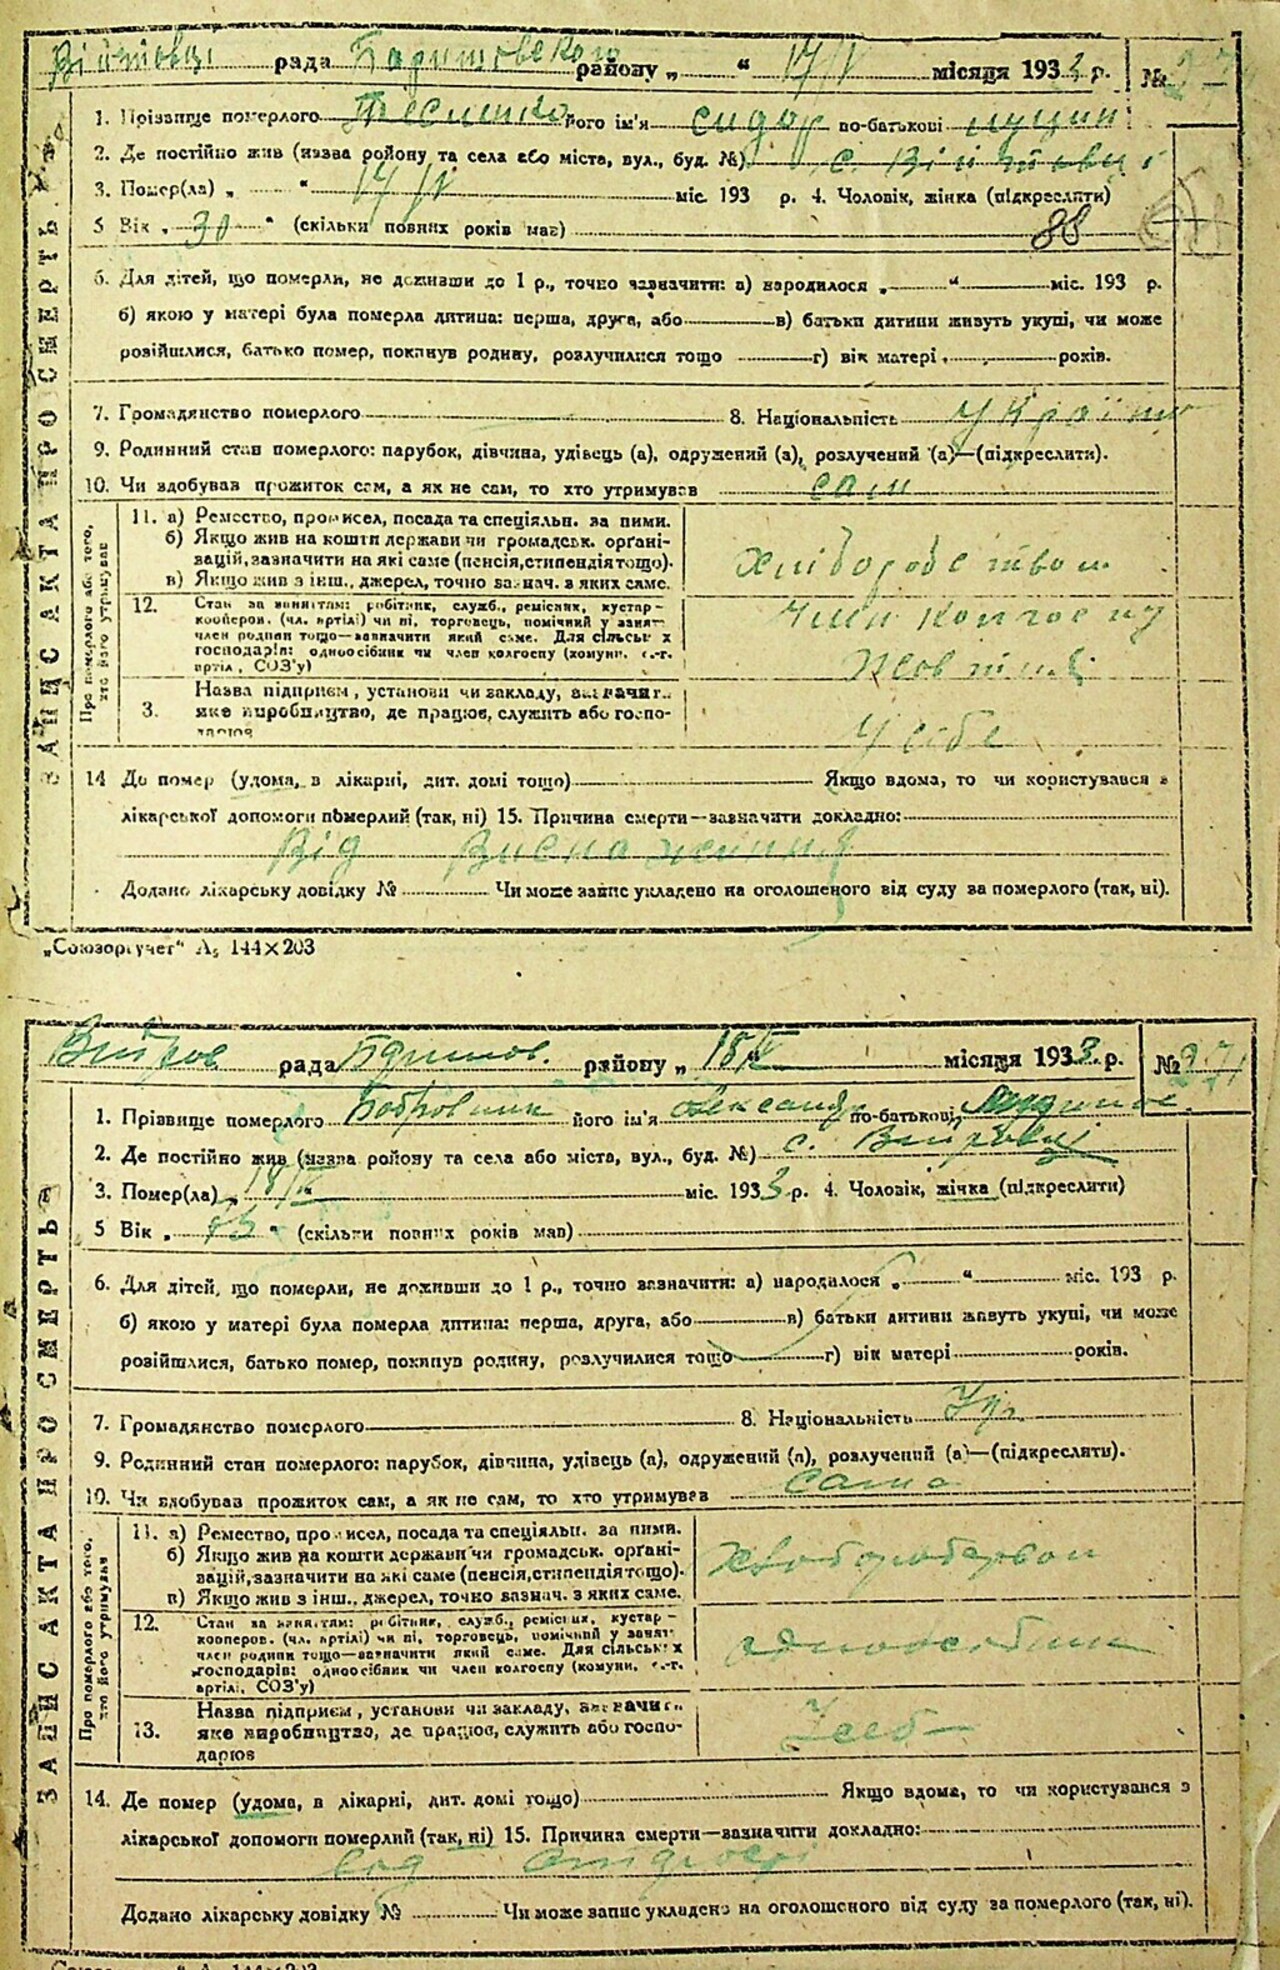 Війтовці рада Баришовського району „ “ 17/V місяця 1933 р. №
ЗАПИС АКТА ПРО СМЕРТЬ
1. Прізвище померлого його ім'я Сидор по-батькові
2. Де постійно жив (назва району та села або міста, вул., буд. №) с. Війтовці
3. Помер(ла) „ “ 17/V міс. 193 р. 4. Чоловік, жінка (підкреслити)
5 Вік „ 30 “ (скільки повних років мав) 88
6. Для дітей, що померли, не доживши до 1 р., точно зазначити: а) народилося „ “ міс. 193 р.
б) якою у матері була померла дитина: перша, друга, або в) батьки дитини живуть укупі, чи може
розійшлися, батько помер, покинув родину, розлучилися тощо г) вік матері років.
7. Громадянство померлого 8. Національність
9. Родинний стан померлого: парубок, дівчина, удівець (а), одружений (а), розлучений (а)—(підкреслити).
10. Чи здобував прожиток сам, а як не сам, то хто утримував сам
Про померлого або того, хто його утримував
11. а) Ремество, промисел, посада та спеціяльн. за ними.
б) Якщо жив на кошти держави чи громадськ. органі-
зацій, зазначити на які саме (пенсія, стипендія тощо).
в) Якщо жив з інш., джерел, точно зазнач. з яких саме.
Хліборобством
12. Стан за заняттям: робітник, служб., ремісник, кустар-
кооперов. (чл. артілі) чи ні, торговець, помічний у занят-
член родини тощо—зазначити який саме. Для сільськ х
господарів: одноосібник чи член колгоспу (комуни, с.-г.
артіл, СОЗ'у)
Член колгоспу
3. Назва підприєм, установи чи закладу, зазначит.
яке виробництво, де працює, служить або госпо-
дарює
У себе
14 Де помер (удома, в лікарні, дит. домі тощо) Якщо вдома, то чи користувався з
лікарської допомоги померлий (так, ні) 15. Причина смерти—зазначити докладно:
Від Виснаження
Додано лікарську довідку № Чи може запис укладено на оголошеного від суду за померлого (так, ні).
„Союзоргучет“ А5 144×203
рада району „ 18/V місяця 1933 р. № 271
ЗАПИС АКТА ПРО СМЕРТЬ
1. Прізвище померлого Бобровник його ім'я Олександра по-батькові
2. Де постійно жив (назва району та села або міста, вул., буд. №) с.
3. Помер(ла) „ 18/V “ міс. 1933 р. 4. Чоловік, жінка (підкреслити)
5 Вік „ “ (скільки повних років мав)
6. Для дітей, що померли, не доживши до 1 р., точно зазначити: а) народилося „ “ міс. 193 р.
б) якою у матері була померла дитина: перша, друга, або в) батьки дитини живуть укупі, чи може
розійшлися, батько помер, покинув родину, розлучилися тощо г) вік матері років.
7. Громадянство померлого 8. Національність Укр.
9. Родинний стан померлого: парубок, дівчина, удівець (а), одружений (а), розлучений (а)—(підкреслити).
10. Чи здобував прожиток сам, а як не сам, то хто утримував сама
Про померлого або того, хто його утримував
11. а) Ремество, промисел, посада та спеціяльн. за ними.
б) Якщо жив на кошти держави чи громадськ. органі-
зацій, зазначити на які саме (пенсія, стипендія тощо).
в) Якщо жив з інш., джерел, точно зазнач. з яких саме.
12. Стан за заняттям: робітник, служб., ремісник, кустар-
кооперов. (чл. артілі) чи ні, торговець, помічний у занят-
член родини тощо—зазначити який саме. Для сільськ х
господарів: одноосібник чи член колгоспу (комуни, с.-г.
артілі, СОЗ'у)
одноосібник
13. Назва підприєм, установи чи закладу, зазначит.
яке виробництво, де працює, служить або госпо-
дарює
14. Де помер (удома, в лікарні, дит. домі тощо) Якщо вдома, то чи користувався з
лікарської допомоги померлий (так, ні) 15. Причина смерти—зазначити докладно:
Додано лікарську довідку № Чи може запис укладено на оголошеного від суду за померлого (так, ні).
144×203